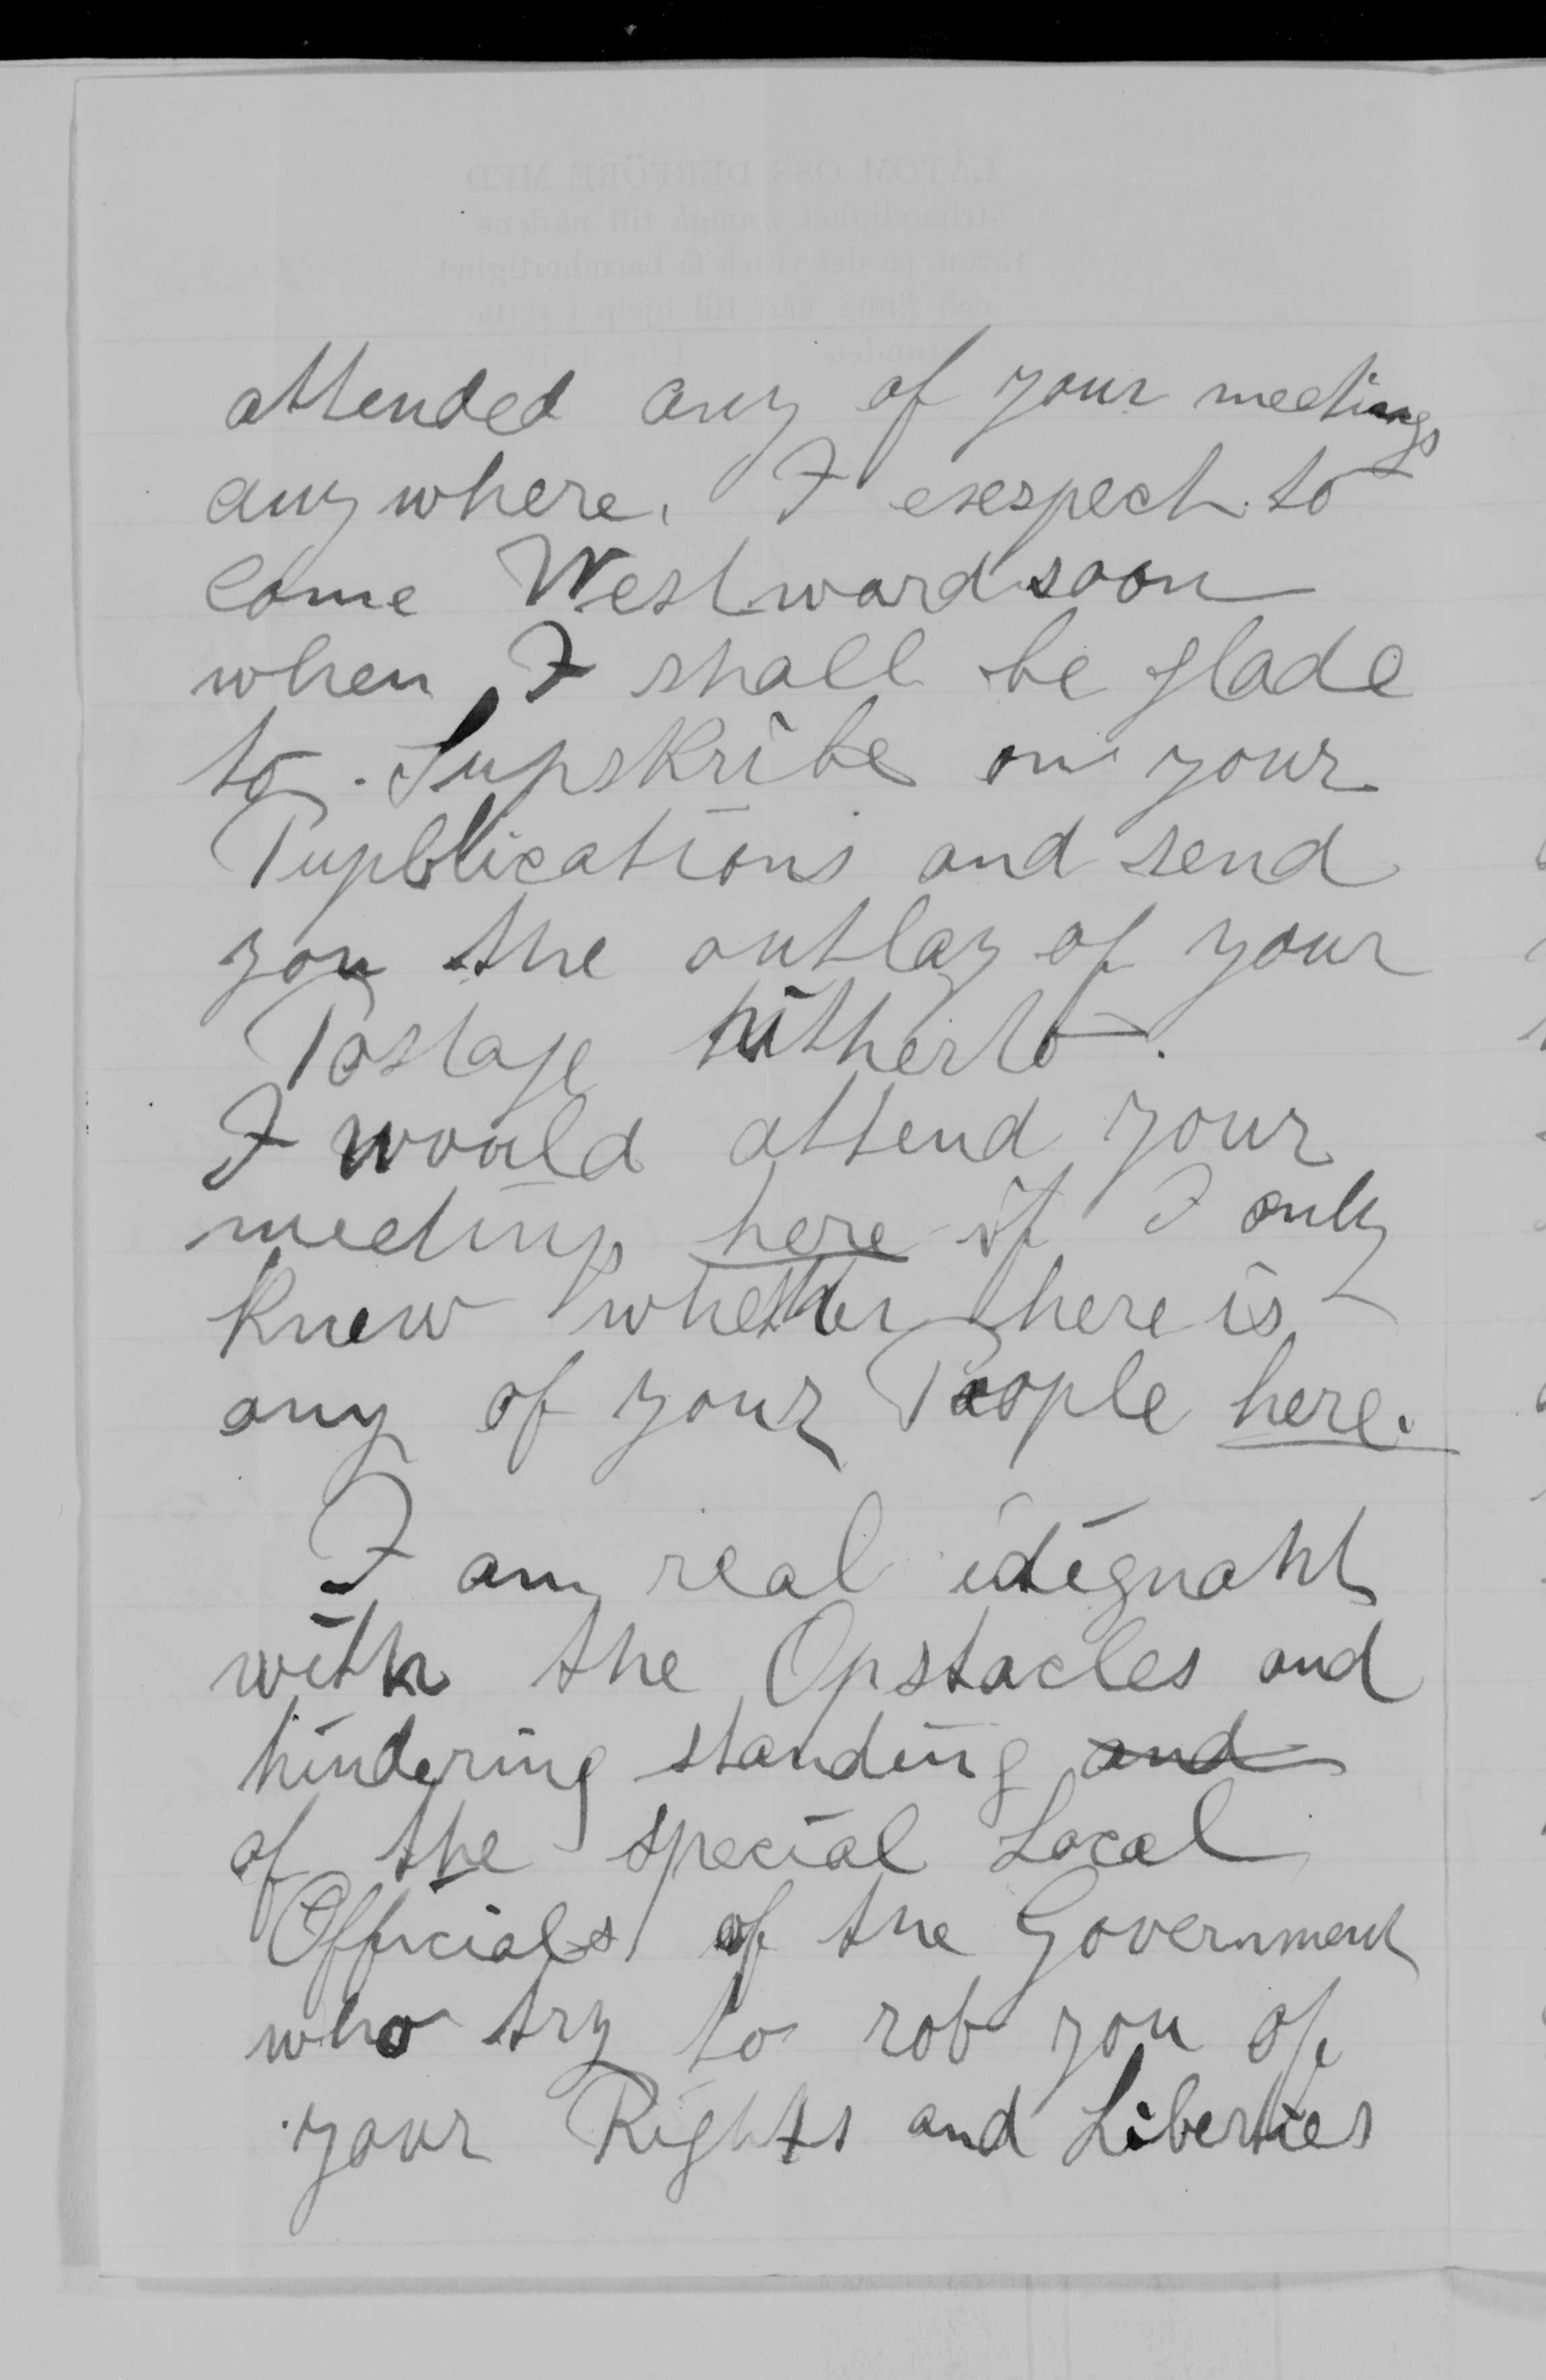 LÅTOM OSS DERFÖRE MED
frimodighet framgå till nådens
thron, på det vi må få barmhertighet
och finna nåd till hjelp i rätta
stunden
attended any of your meetings
any where. I exespect to
come Westward soon
when I shall be glade
to Supskribe on your
Pupblications and send
you the outlay of your
Postage hitherto.
I would attend your
meeting here if I only
Knew whether there is
any of your People here.
I am real idignaht
with the Opstacles and
hindering standing and
of the special Local
Officials of the Government
who try to rob you of
your Rights and Liberties